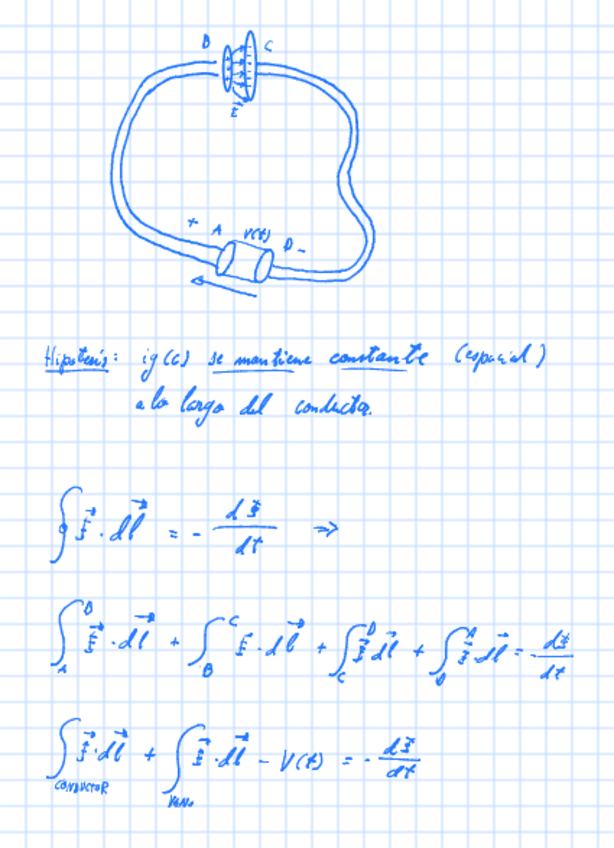 B C
E⃗
+ A V(t) D -
Hipótesis: ig(t) se mantiene constante (espacial)
a lo largo del conductor.
∮ E⃗ . dl⃗ = - dΦ/dt ⇒
∫_A^B E⃗ . dl⃗ + ∫_B^C E⃗ . dl⃗ + ∫_C^D E⃗ dl⃗ + ∫_D^A E⃗ . dl⃗ = - dΦ/dt
∫_CONDUCTOR E⃗ . dl⃗ + ∫ E⃗ . dl⃗ - V(t) = - dΦ/dt